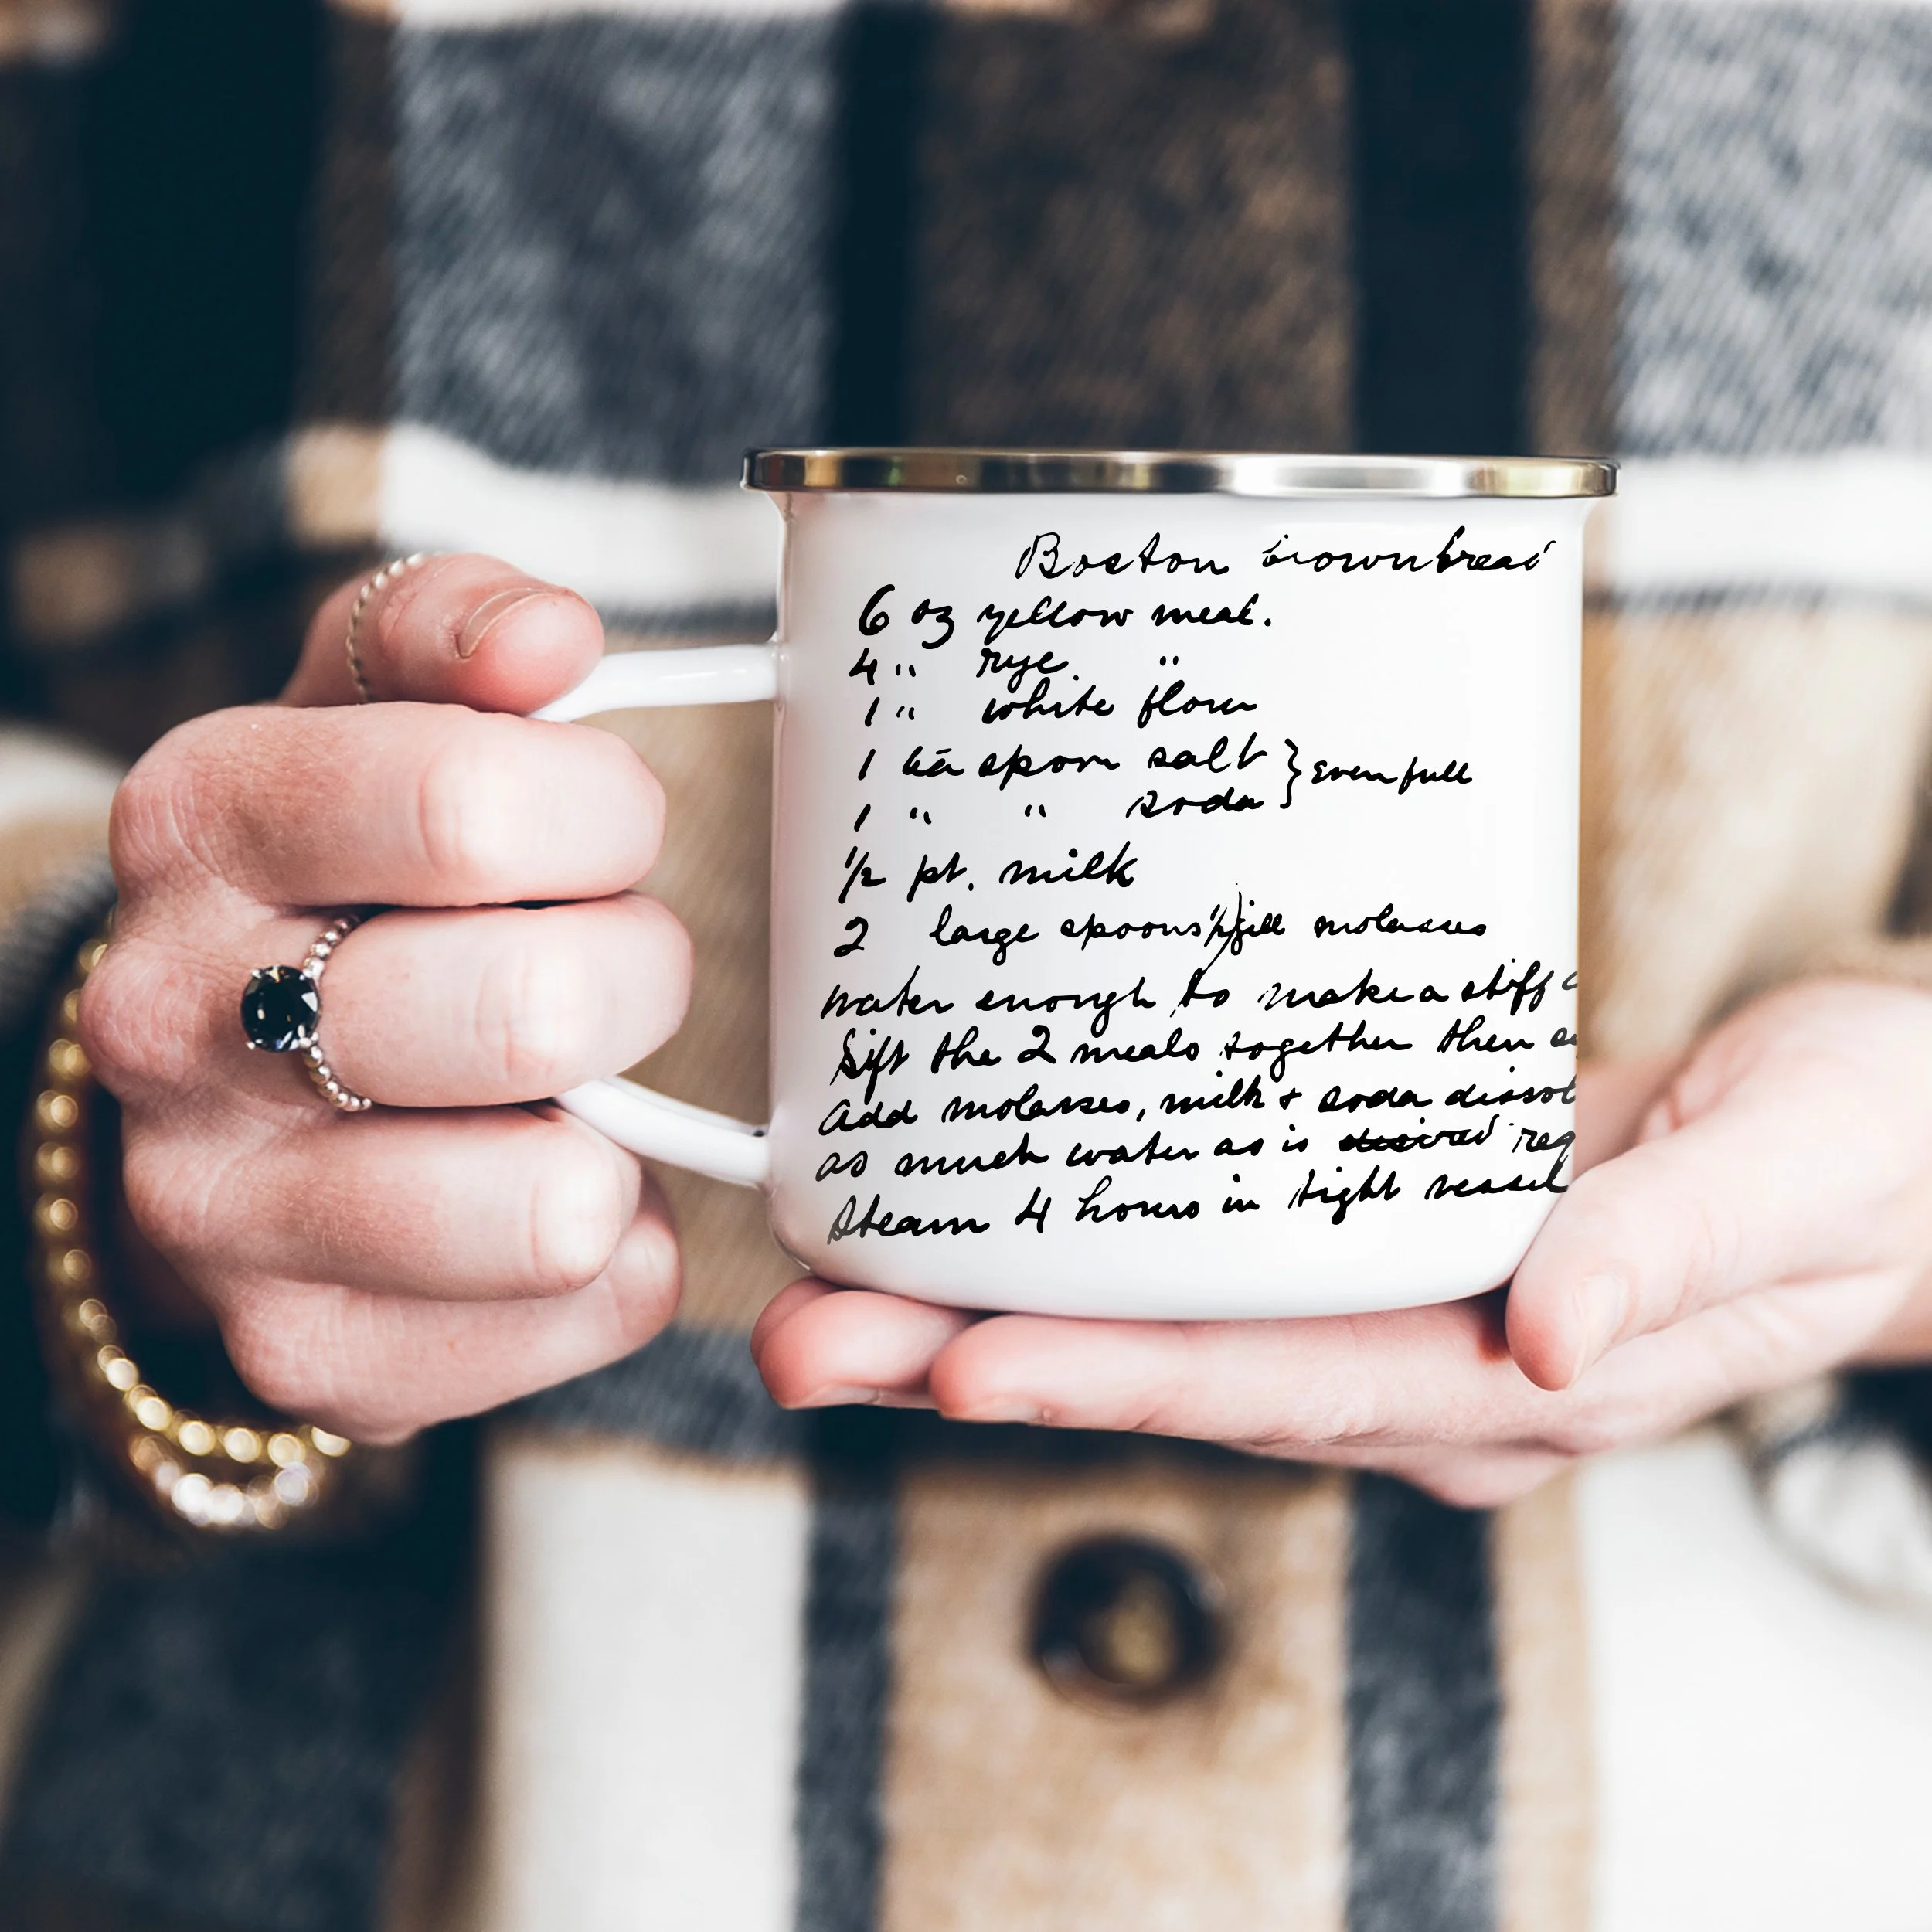 Boston brownbread
6 oz yellow meal.
4 " rye "
1 " white flour
1 tea spoon salt } even full
1 " " soda
1/2 pt. milk
2 large spoons 1/2 gill molasses
water enough to make a stiff
Sift the 2 meals together then
add molasses, milk + soda dissol
as much water as is desired req
Steam 4 hours in tight vessel